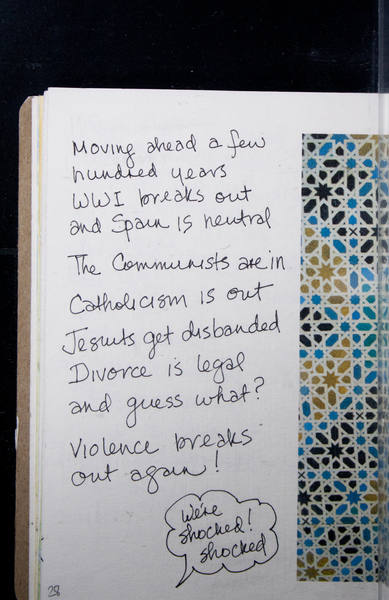 Moving ahead a few
hundred years
WWI breaks out
and Spain is neutral
The Communists are in
Catholicism is out
Jesuits get disbanded
Divorce is legal
and guess what?
Violence breaks
out again!
We're
shocked!
shocked
28